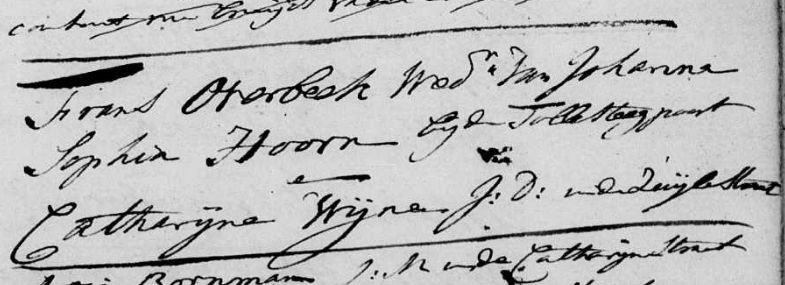 Frans Overbeek Wedr Van Johanna
Sophia Hoorn by de Tollesteegpoort
e
Catharÿne Wÿne J: D: in de Zuÿlestraat
Bornmann J: M in de Catharÿnestraat